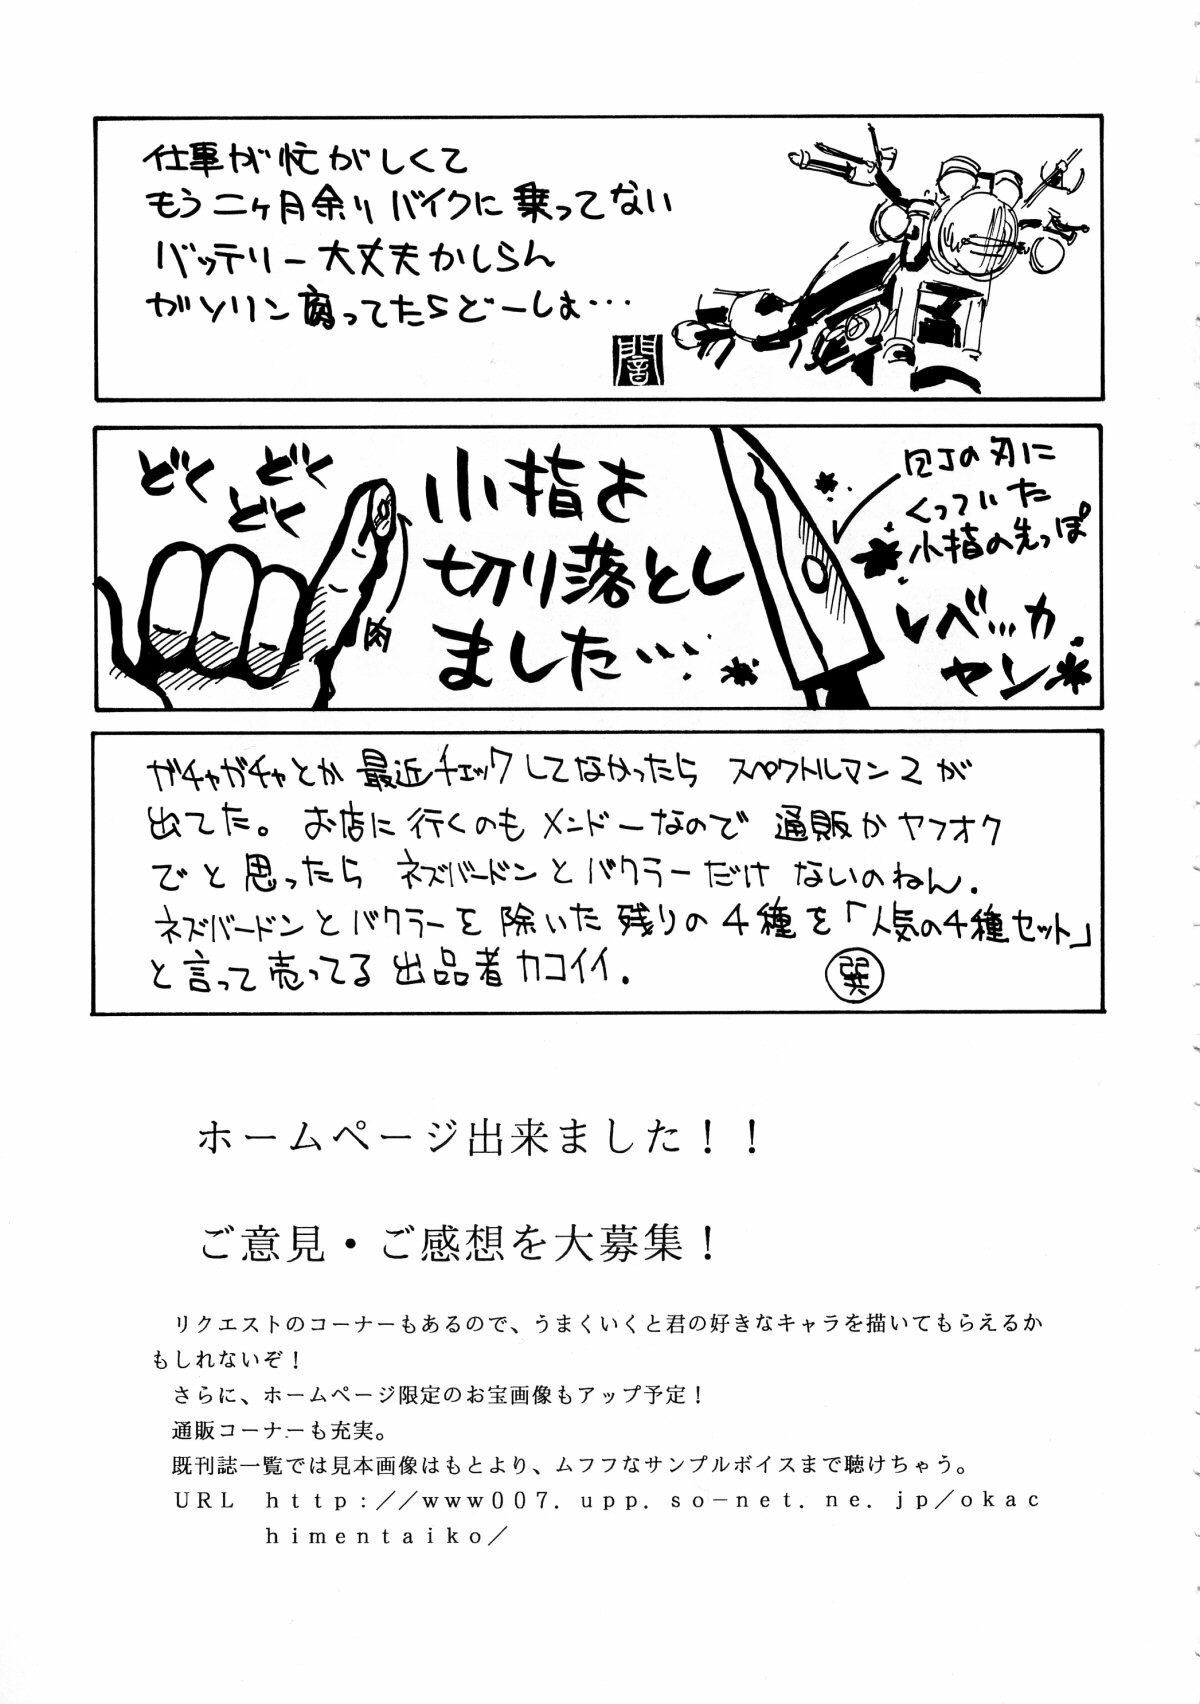 仕事が忙がしくて
もう二ヶ月余りバイクに乗ってない
バッテリー大丈夫かしらん
ガソリン腐ってたらどーしよ・・・
闇
どくどくどく
小指を
切り落とし
ました・・・
肉
包丁の刃に
くっついていた
小指の先っぽ
レベッカ
ヤン
ガチャガチャとか最近チェックしてなかったら スペクトルマン2が
出てた。お店に行くのもメンドーなので 通販かヤフオク
でと思ったら ネズバードンとバクラーだけ ないのねん.
ネズバードンとバクラーを除いた残りの4種を「人気の4種セット」
と言って売ってる出品者カコイイ.
巽
ホームページ出来ました！！
ご意見・ご感想を大募集！
リクエストのコーナーもあるので、うまくいくと君の好きなキャラを描いてもらえるか
もしれないぞ！
さらに、ホームページ限定のお宝画像もアップ予定！
通販コーナーも充実。
既刊誌一覧では見本画像はもとより、ムフフなサンプルボイスまで聴けちゃう。
ＵＲＬ　ｈｔｔｐ：／／ｗｗｗ００７．ｕｐｐ．ｓｏ－ｎｅｔ．ｎｅ．ｊｐ／ｏｋａｃ
ｈｉｍｅｎｔａｉｋｏ／